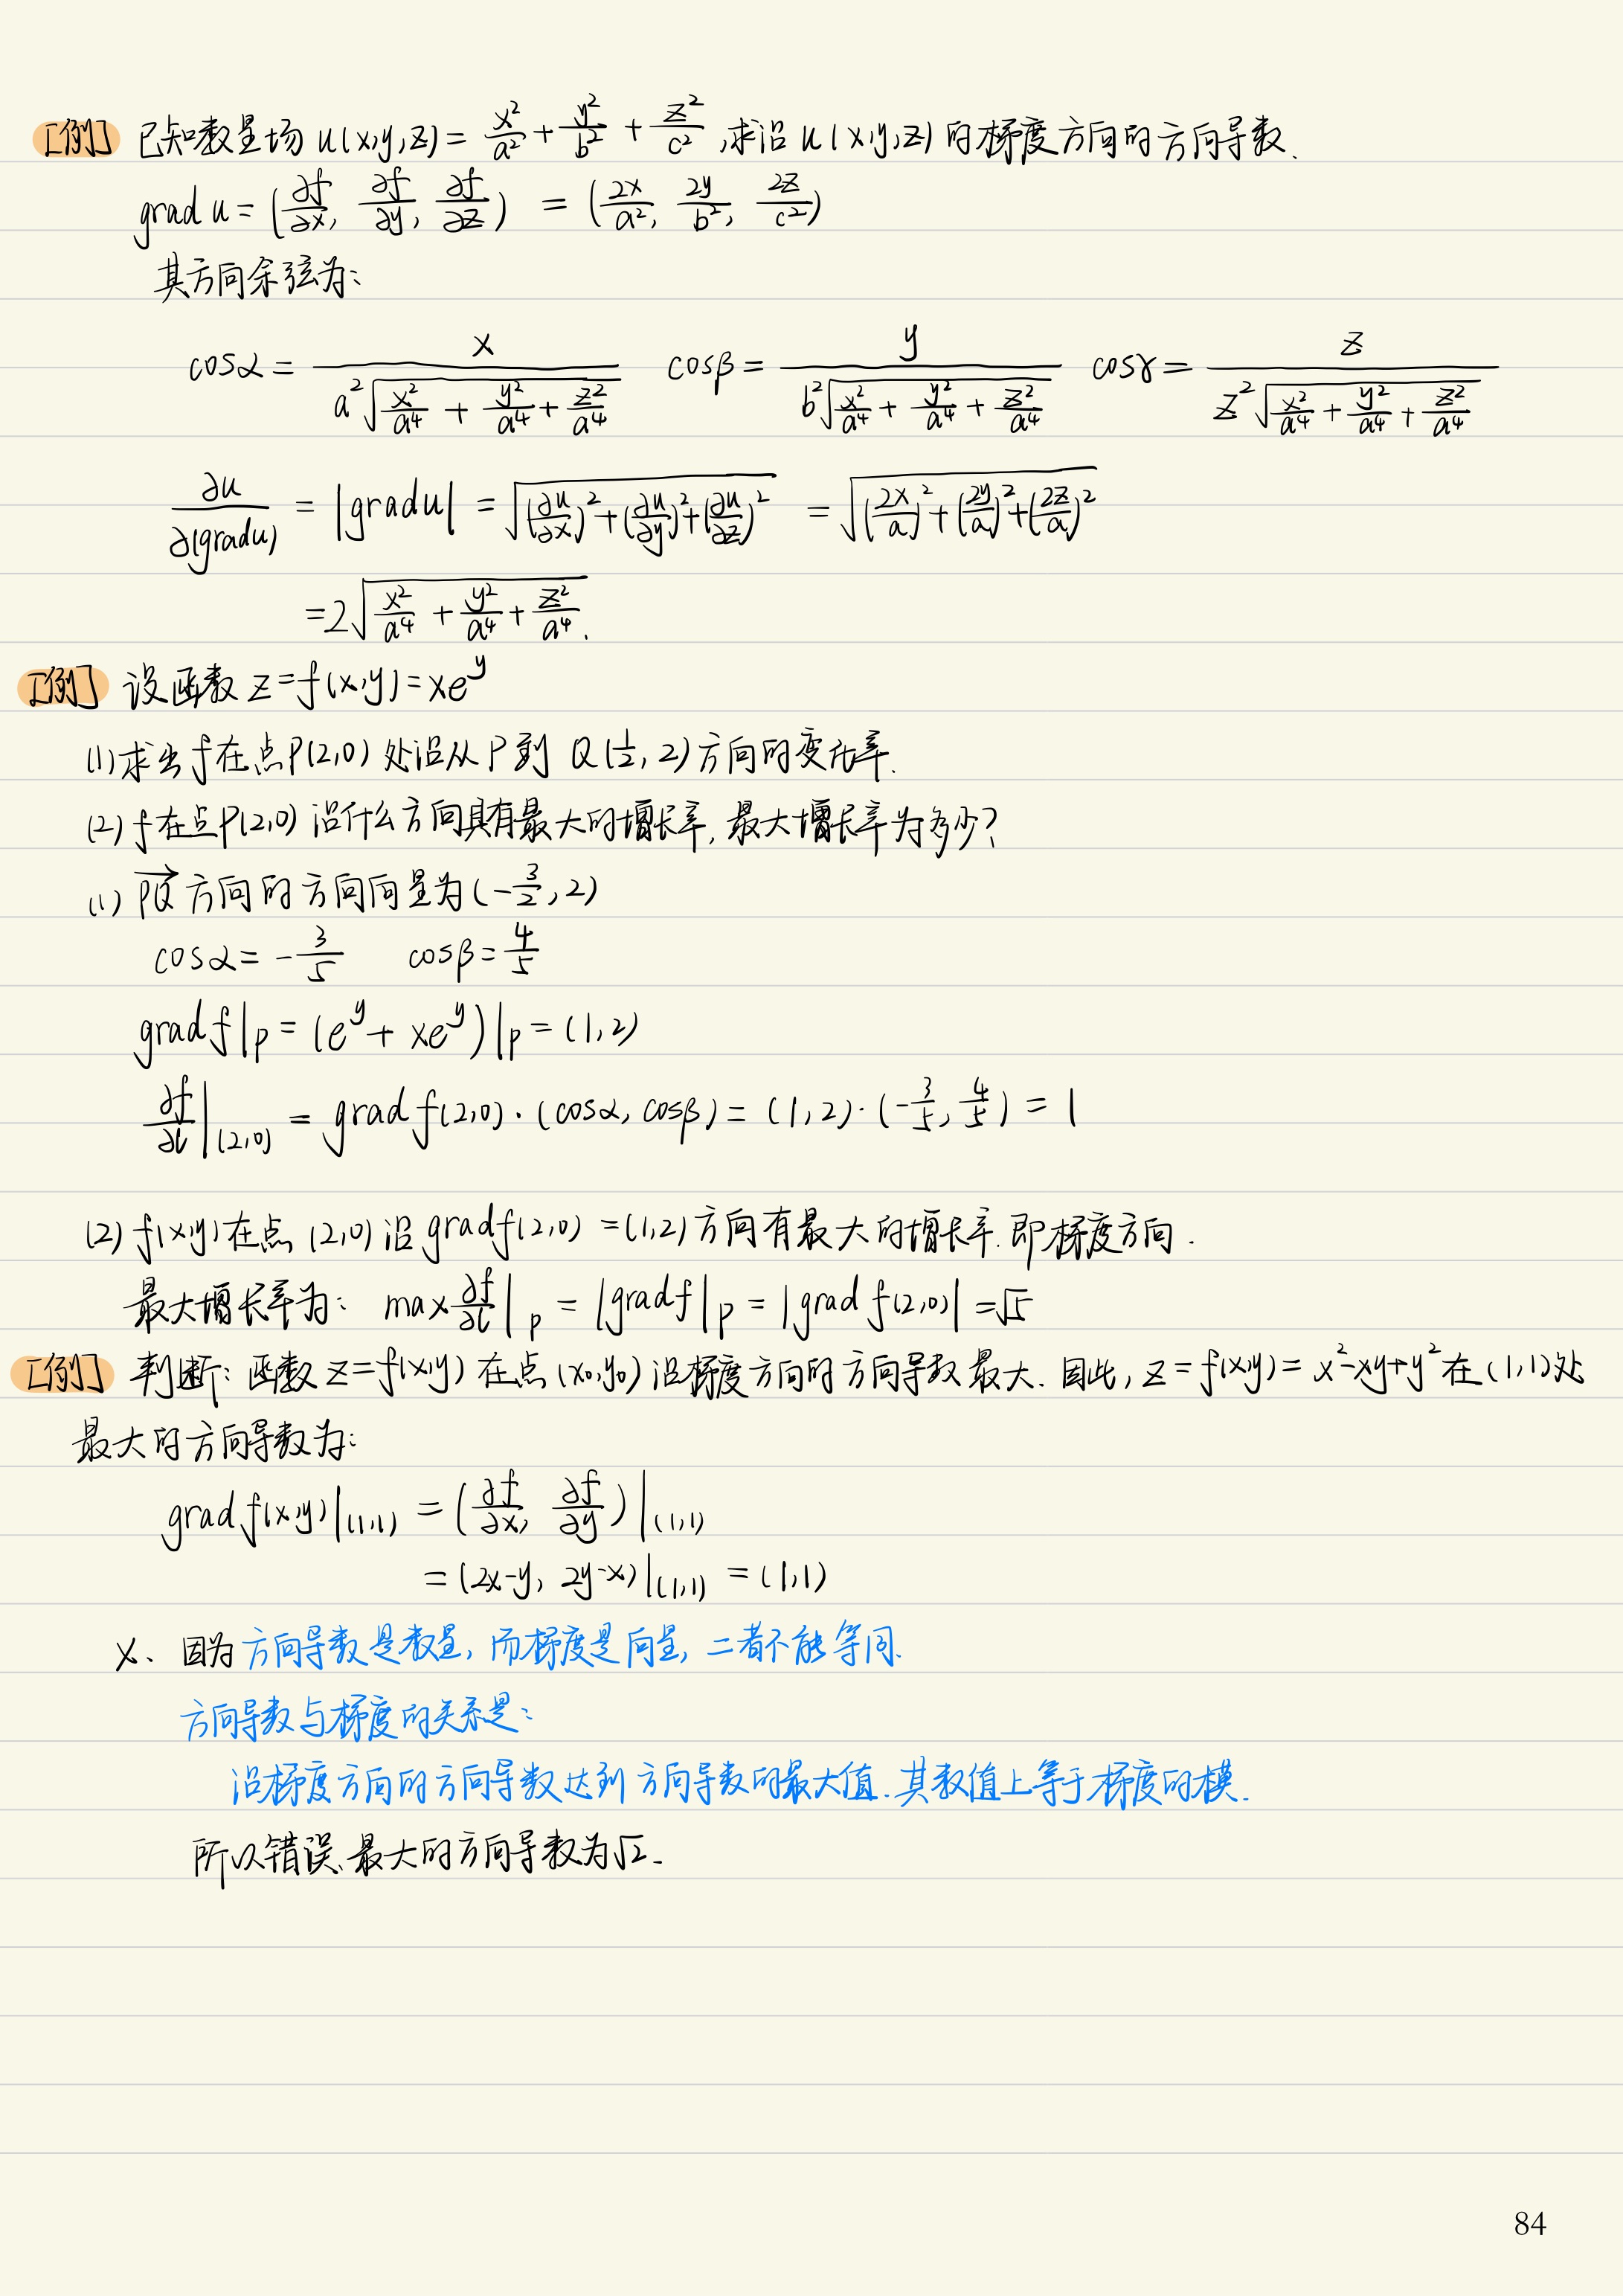 [例] 已知数量场 u(x,y,z) = x²/a² + y²/b² + z²/c² ,求沿 u(x,y,z) 的梯度方向的方向导数.
grad u = (∂f/∂x, ∂f/∂y, ∂f/∂z) = (2x/a², 2y/b², 2z/c²)
其方向余弦为:
cosα = x/(a²√(x²/a⁴ + y²/a⁴ + z²/a⁴)) cosβ = y/(b²√(x²/a⁴ + y²/a⁴ + z²/a⁴)) cosγ = z/(z²√(x²/a⁴ + y²/a⁴ + z²/a⁴))
∂u/∂(gradu) = |gradu| = √((∂u/∂x)² + (∂u/∂y)² + (∂u/∂z)²) = √((2x/a)² + (2y/a)² + (2z/a)²)
= 2√(x²/a⁴ + y²/a⁴ + z²/a⁴).
[例] 设函数 z = f(x,y) = xe^y
(1) 求出 f 在点 P(2,0) 处沿从 P 到 Q(1/2, 2) 方向的变化率.
(2) f 在点 P(2,0) 沿什么方向具有最大的增长率, 最大增长率为多少?
(1) PQ→ 方向的方向向量为 (-3/2, 2)
cosα = -3/5 cosβ = 4/5
grad f|p = (e^y + xe^y)|p = (1,2)
∂f/∂l|(2,0) = grad f(2,0)·(cosα, cosβ) = (1,2)·(-3/5, 4/5) = 1
(2) f(x,y) 在点 (2,0) 沿 grad f(2,0) = (1,2) 方向有最大的增长率. 即梯度方向.
最大增长率为: max ∂f/∂l|p = |grad f|p = |grad f(2,0)| = √5
[例] 判断: 函数 z = f(x,y) 在点 (x₀,y₀) 沿梯度方向的方向导数最大. 因此, z = f(x,y) = x²-xy+y² 在 (1,1) 处
最大的方向导数为:
grad f(x,y)|(1,1) = (∂f/∂x, ∂f/∂y)|(1,1)
= (2x-y, 2y-x)|(1,1) = (1,1)
×、因为方向导数是数量, 而梯度是向量, 二者不能等同.
方向导数与梯度的关系是:
沿梯度方向的方向导数达到方向导数的最大值. 其数值上等于梯度的模.
所以错误、最大的方向导数为√2.
84